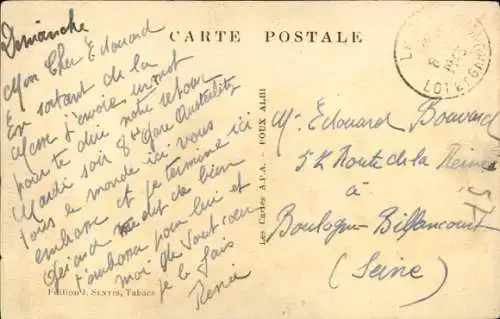 CARTE POSTALE
Dimanche
Mon Cher Edouard
En sortant de la
Messe j'envoie un mot
pour te dire notre retour
Mardi soir 8h Gare Austerlitz
tous le monde ici vous
embrasse et je termine ici
Gérard me dit de bien
t'embrasser pour lui et
moi de tout cœur
je le fais
Renée
Edition J. SENTIS, Tabacs
Les Cartes A.P.A. - POUX ALBI
LOT-ET-GARONNE
M. Edouard Bouvard
52 Route de la Reine
à
Boulogne-Billancourt
(Seine)